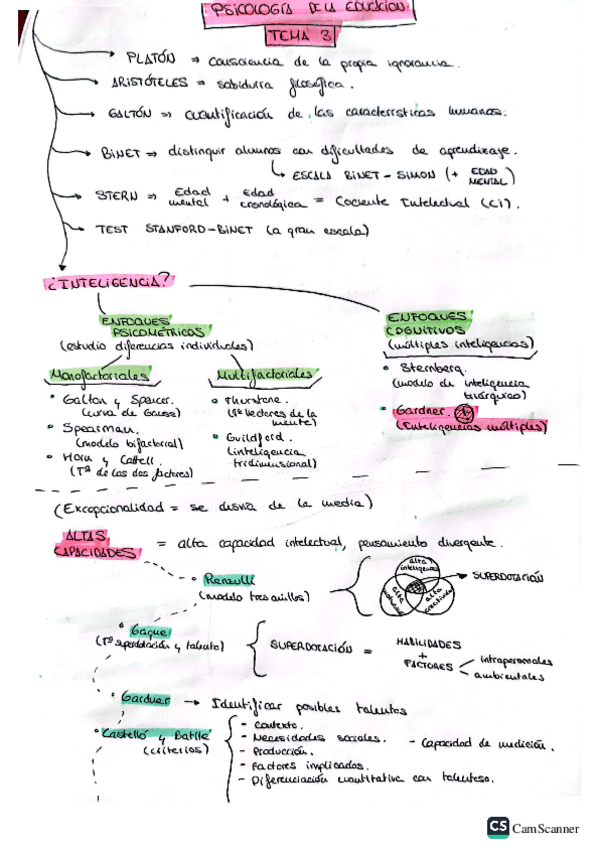 PSICOLOGÍA DE LA EDUCACIÓN
TEMA 3
PLATÓN ⇒ consciencia de la propia ignorancia.
ARISTÓTELES ⇒ sabiduría filosófica.
GALTÓN ⇒ cuantificación de las características humanas.
BINET ⇒ distinguir alumnos con dificultades de aprendizaje.
↳ ESCALA BINET - SIMON (+ EDAD MENTAL)
STERN ⇒ Edad mental + Edad cronológica = Cociente Intelectual (CI).
TEST STANFORD-BINET (la gran escala)
¿INTELIGENCIA?
ENFOQUES
PSICOMÉTRICOS
(estudio diferencias individuales)
Monofactoriales
• Galton y Spencer.
(curva de Gauss)
• Spearman.
(modelo bifactorial)
• Horn y Cattell.
(Tª de los dos factores)
Multifactoriales
• Thurstone.
(7 Vectores de la
mente)
• Guildford.
(inteligencia
tridimensional)
ENFOQUES
COGNITIVOS
(múltiples inteligencias)
• Sternberg.
(modelo de inteligencia
triárquico)
• Gardner.
(Inteligencias múltiples)
(Excepcionalidad = se desvía de la media)
ALTAS
CAPACIDADES
= alta capacidad intelectual, pensamiento divergente.
• Renzulli
(modelo tres anillos)
alta
inteligencia
alta
alta
creatividad
→ SUPERDOTACIÓN
• Gagne
(Tª superdotación y talento)
SUPERDOTACIÓN = HABILIDADES
+
FACTORES
intrapersonales
ambientales
• Gardner → Identificar posibles talentos
• Castelló y Batlle
(criterios)
- Contexto.
- Necesidades sociales. - Capacidad de medición.
- Producción.
- Factores implicados.
- Diferenciación cuantitativa con talentoso.
CS CamScanner